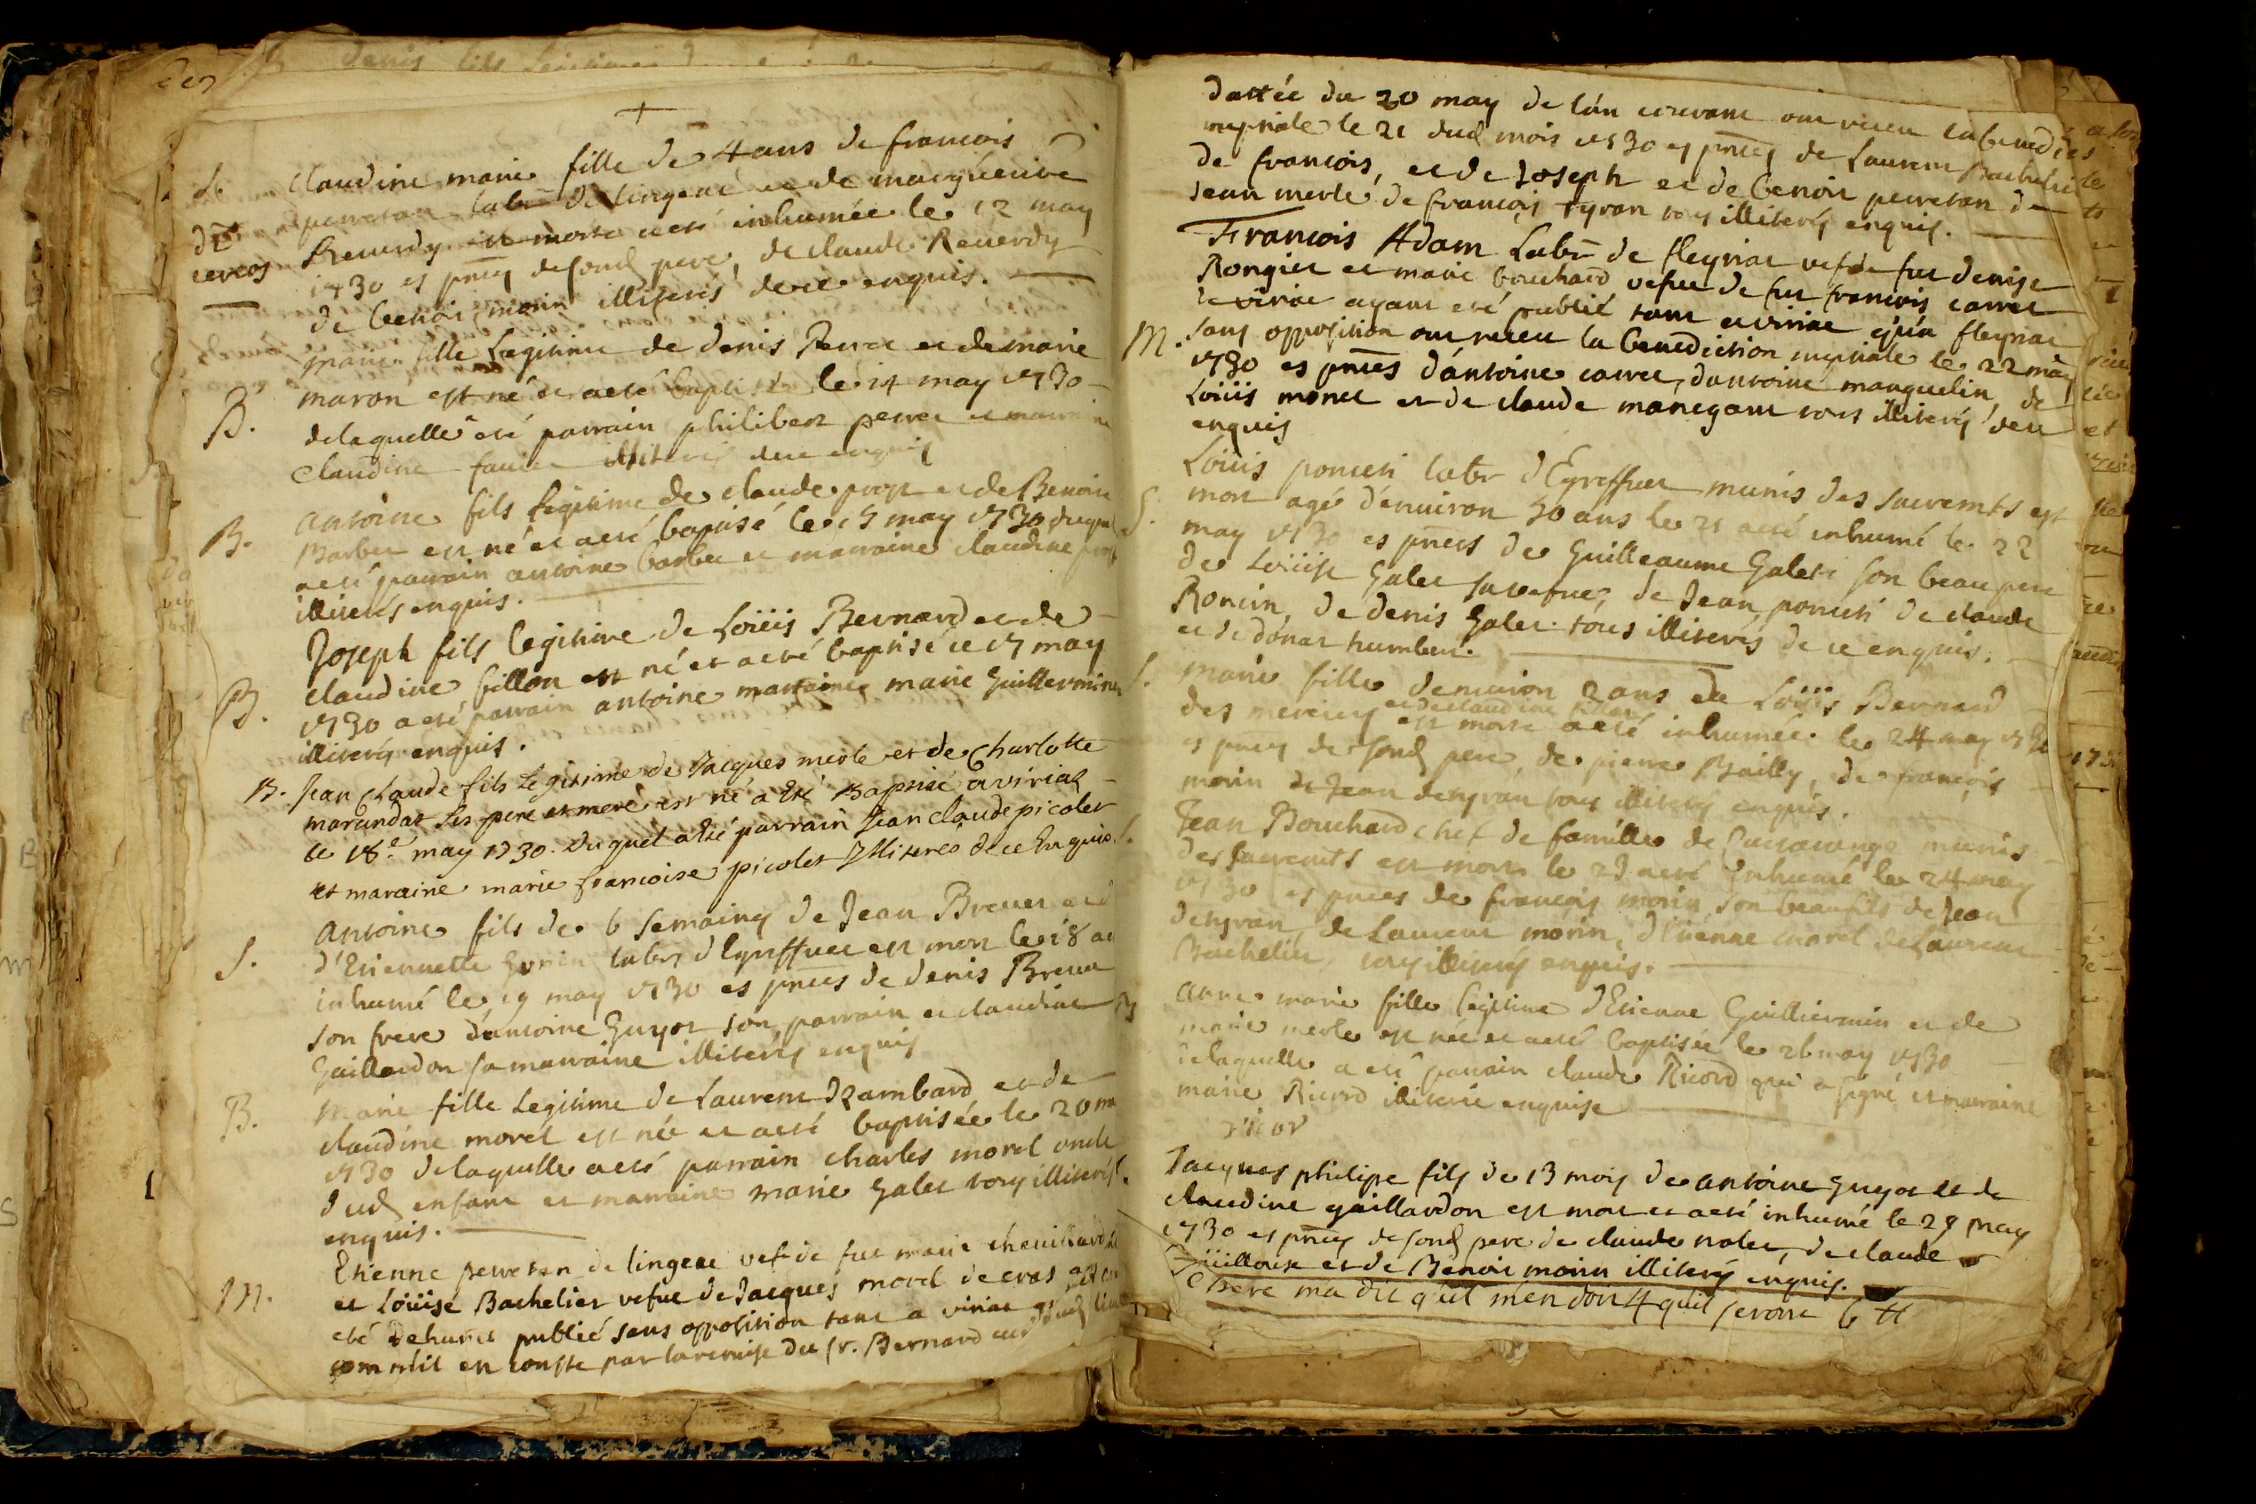 S. Claudine marie fille de 4 ans de francois
perretan labr de lingeat et de marguerite
dt Reuerdy est morte a eté inhumée le 12 may
1730 es pnces desond pere, de claude Reuerdy
de benoit morin illiterés de ce enquis.
marie fille Legitime de denis Perret et de marie
B. maron est né et a eté baptisé le 14 may 1730
delaquelle a eté parrain philibert perret et marraine
Claudine favier illiterés de ce enquis
B. antoine fils legitime de claude prost et de Benoite
Barbet est né et a eté baptisé le 15 may 1730 duquel
a eté parrain antoine barbet et marraine claudine prost
illiterés enquis.
Joseph fils legitime de Loüis Bernard et de
B. claudine fillon est né et a eté baptisé le 17 may
1730 a eté parrain antoine marraine marie Guillermin
illiterés enquis.
B. Jean Claude fils Legitime de Jacques merle et de Charlotte
marandat ses pere et mere est né a Eté Baptisé a viriat
le 18e may 1730. duquel a Eté parrain Jean claude picolet
et maraine marie francoise picolet Illiterés de ce Enquis.
antoine fils de 6 semaines de Jean Breuet et
S. d'Etiennette labr d'Eyreffuet est mort le 18 a eté
inhumé le 19 may 1730 es pnces de denis Breuet
son frere d'antoine Guyot son parrain et claudine
Gaillardon sa marraine illiterés enquis
B. Marie fille Legitime de Laurent Rambard et de
claudine morel est née et a eté baptisée le 20 may
1730 delaquelle a eté parrain charles morel oncle
dud enfant et marraine marie Galet tous illiterés
enquis.
Etienne perretan de lingeat vef de fut marie
M. et Loüise Bachelier vefue de Jacques morel de cras
eté publié sans opposition tant a viriat
en conste par la remise du Sr. Bernard
dattée du 20 may de l'an courant ont receu la benedict
nuptiale le 21 dud mois 1730 es pnces de Laurent Bachelier
de francois, et de Joseph et de benoit perretan de
Jean merle de francois tyran tous illiterés enquis.
Francois Adam Labr de fleyriat vef de fut denise
Rongier et marie bouchard vefue de fut francois carret
de viriat ayant eté publié tant a viriat qu'a fleyriat
M. sans opposition ont receu la benediction nuptiale le 22 may
1730 es pnces d'antoine carret, d'antoine manguelin, de
Loüis monet et de claude manegant tous illiterés de ce
enquis
Loüis poncet labr d'Eyreffuet munis des sacremts est
S. mort agé d'enuiron 30 ans le 21 a eté inhumé le 22
may 1730 es pnces de Guilleaume Galet son beau pere
de Loüise Galet sa vefue, de Jean poncet de claude
Roncin, de denis Galet tous illiterés de ce enquis.
et de donat humbert.
S. Marie fille denuiron 2 ans de Loüis Bernard
et de claudine fillon
des merciers est morte a eté inhumée le 24 may 1730
es pnces de sond pere, de pierre Bailly, de francois
morin de Jean detyran tous illiterés enquis.
S. Jean Bouchard chef de famille de munis
des sacremts est mort le 23 a eté Inhumé le 24 may
1730 es pnces de francois morin son beaufils de Jean
detyran, de Laurent morin, d'Etienne morel de Laurent
Bachelier, tous illiterés enquis.
anne marie fille legitime d'Etienne Guillermin et de
marie merle est née et a eté baptisée le 26 may 1730
delaquelle a eté parrain claude Ricord qui a signé et marraine
marie Ricord illiterée enquise
ricor
Jacques philipe fils de 13 mois de antoine guyot et de
claudine gaillardon est mort et a eté inhumé le 28 may
1730 es pnces de sond pere de claude nolet, de claude
et de Benoit morin illiterés enquis.
pere ma dit qu'il m'en doit 4 quil seront 6 tt